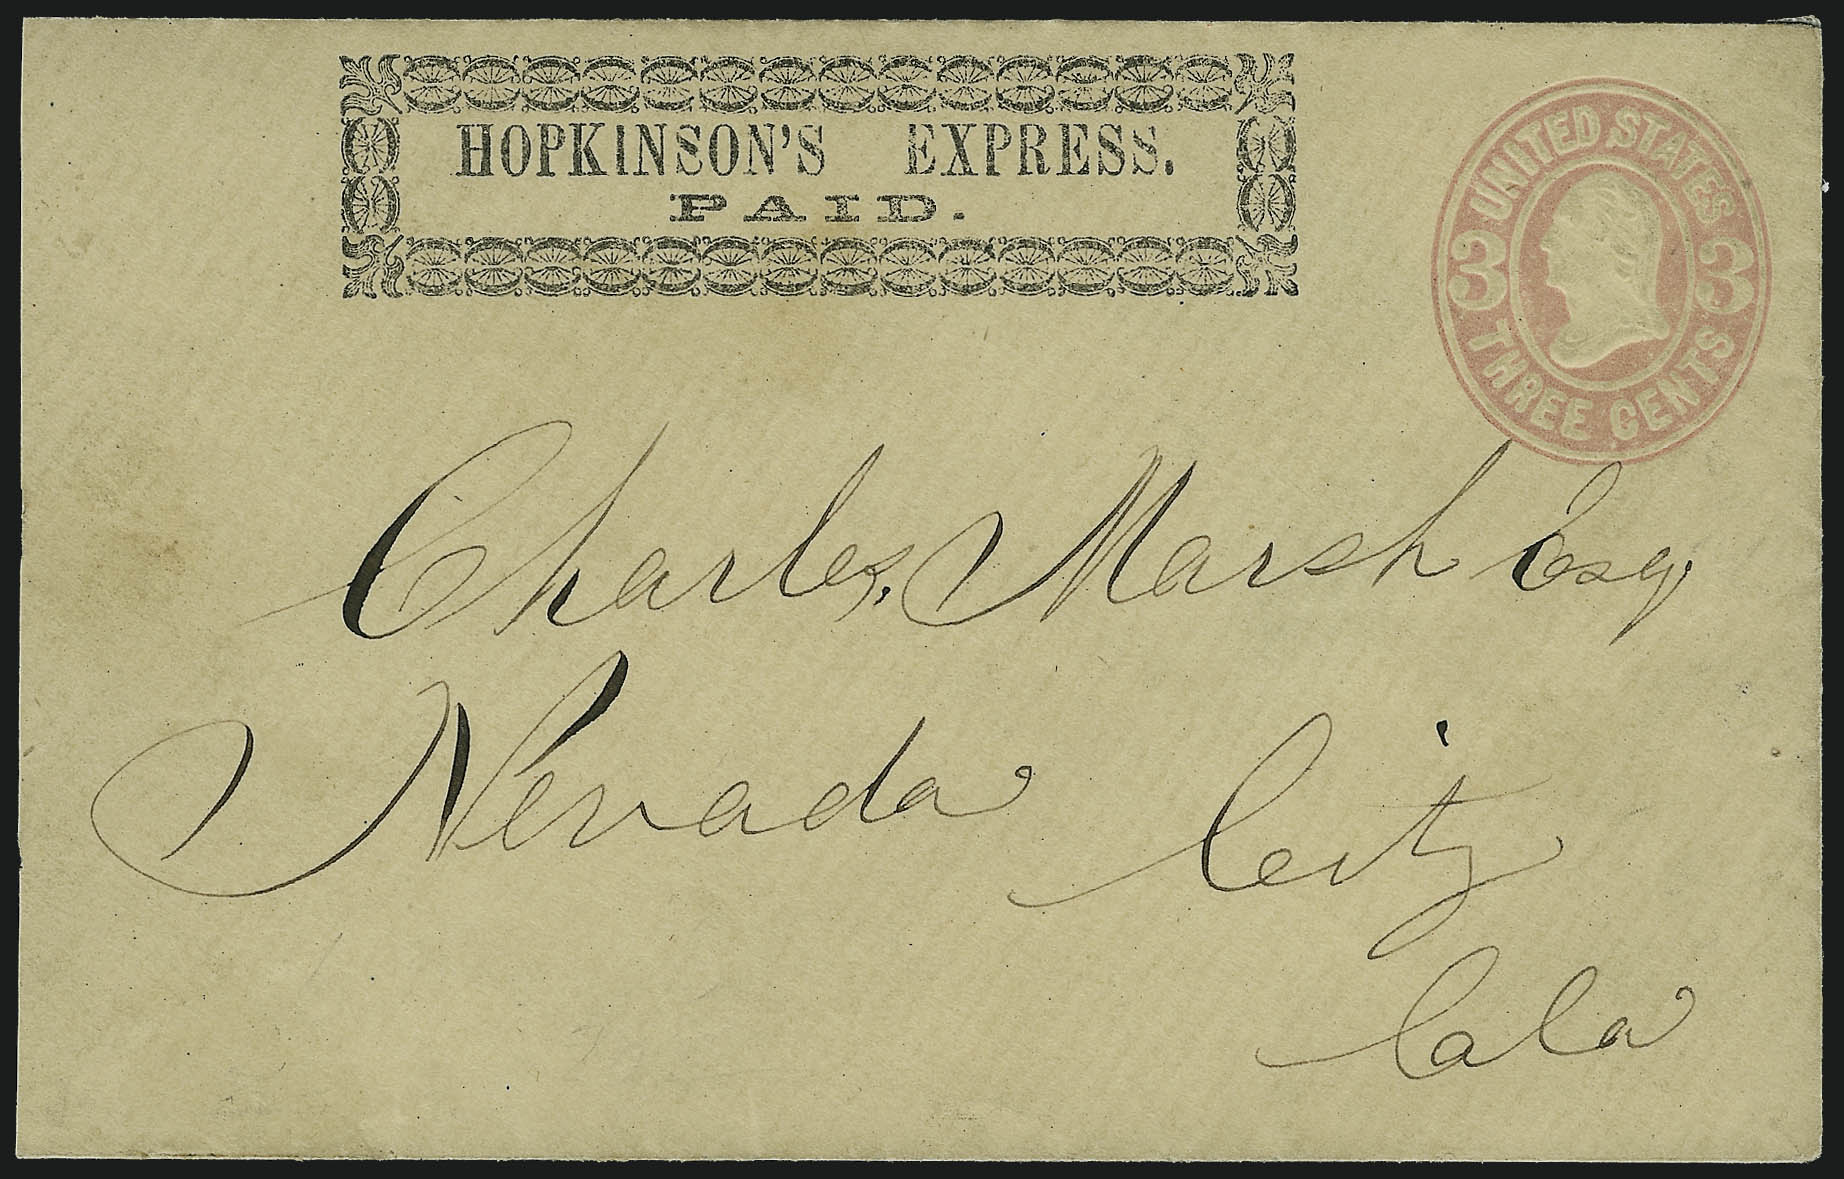 HOPKINSON'S EXPRESS.
PAID.
UNITED STATES
3 3
THREE CENTS
Charles, Marsh Esq.
Nevada City
Cala